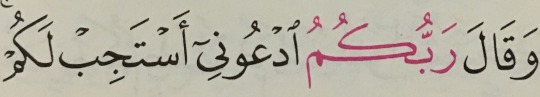 وَقَالَ رَبُّكُمُ ٱدْعُونِىٓ أَسْتَجِبْ لَكُمْ